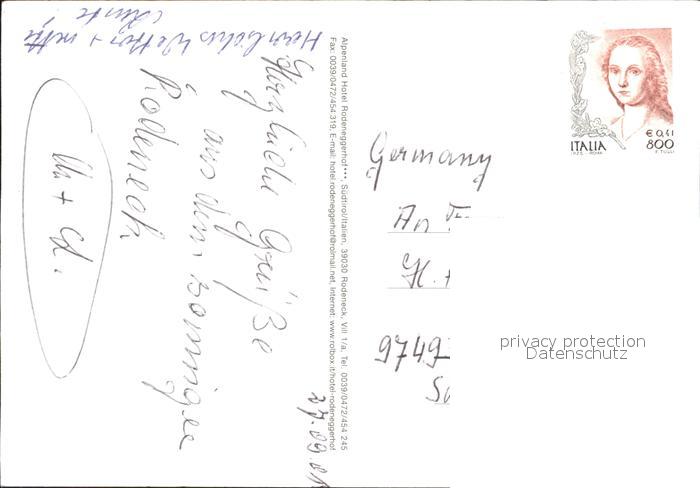 Herrliches Wetter + nette
Leute!
Herzliche Grüße
aus dem sonnigen
Rodeneck
27.09.01
Alpenland Hotel Rodeneggerhof***, Südtirol/Italien, 39030 Rodeneck, Vill 1/a, Tel. 0039/0472/454 245
Fax: 0039/0472/454 319, E-mail: hotel.rodeneggerhof@rolmail.net, Internet: www.rolbox.it/hotel-rodeneggerhof
ITALIA
€ 0,41
800
I.P.Z.S. - ROMA
F. TULLI
Germany
An
H. +
9749
privacy protection
Datenschutz